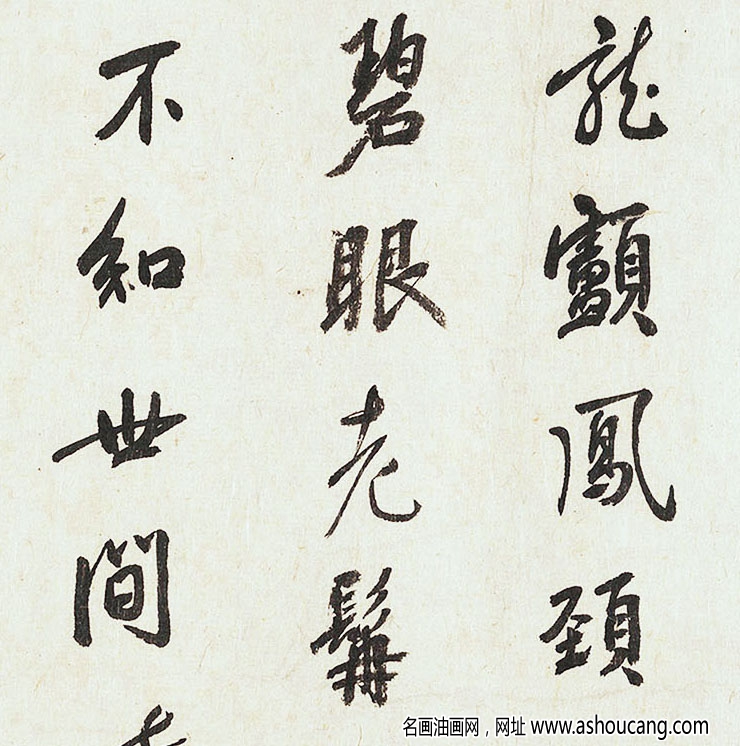 龍顱鳳頸
碧眼老髯
不知世間
名画油画网，网址 www.ashoucang.com